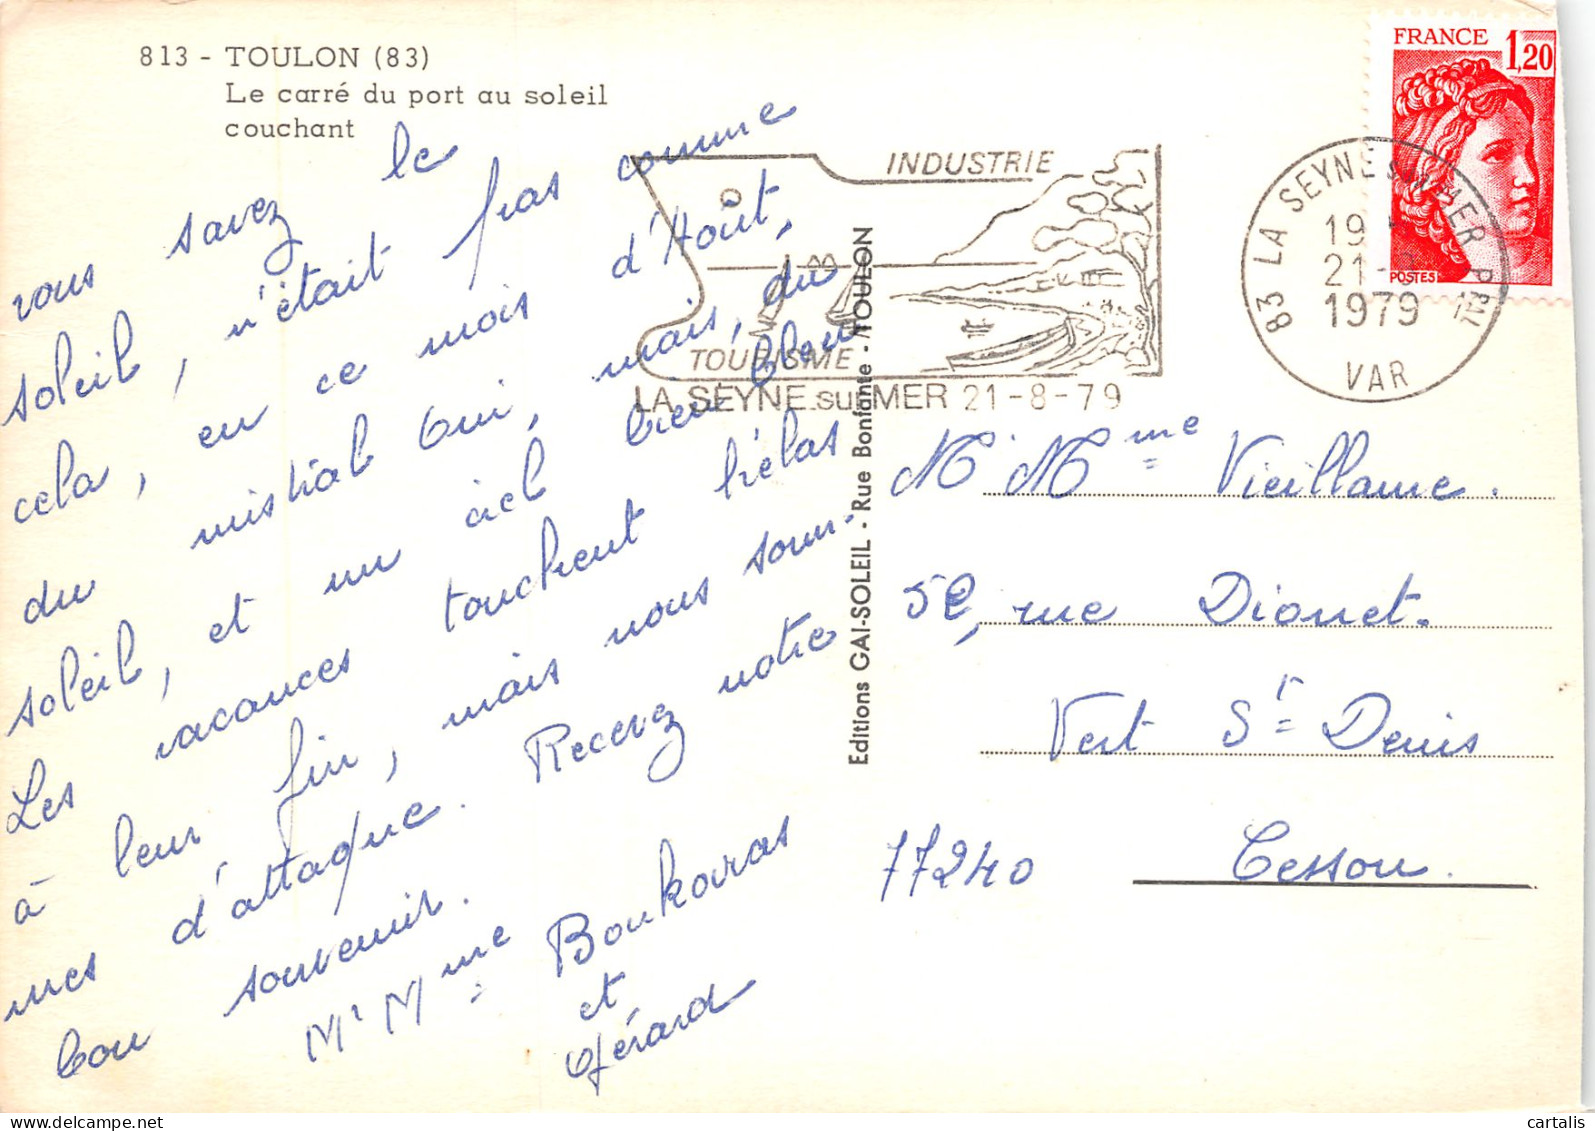 813 - TOULON (83)
Le carré du port au soleil
couchant
vous savez le
soleil, n'était pas comme
cela, en ce mois d'Août,
du mistral oui, mais, du
soleil, et un ciel bien bleu
Les vacances touchent hélas
à leur fin, mais nous som-
mes d'attaque. Recevez notre
bon souvenir.
Mr Mme Boukoras
et
Gérard
Editions GAI-SOLEIL - Rue Bonfante - TOULON
INDUSTRIE
TOURISME
LA SEYNE sur MER 21-8-79
83 LA SEYNE SUR MER PPAL
19 H
21-8
1979
VAR
FRANCE 1,20
POSTES
M. Mme Vieillame.
52, rue Dionet.
Vert St Denis
77240 Cesson.
cartalis
delcampe.net